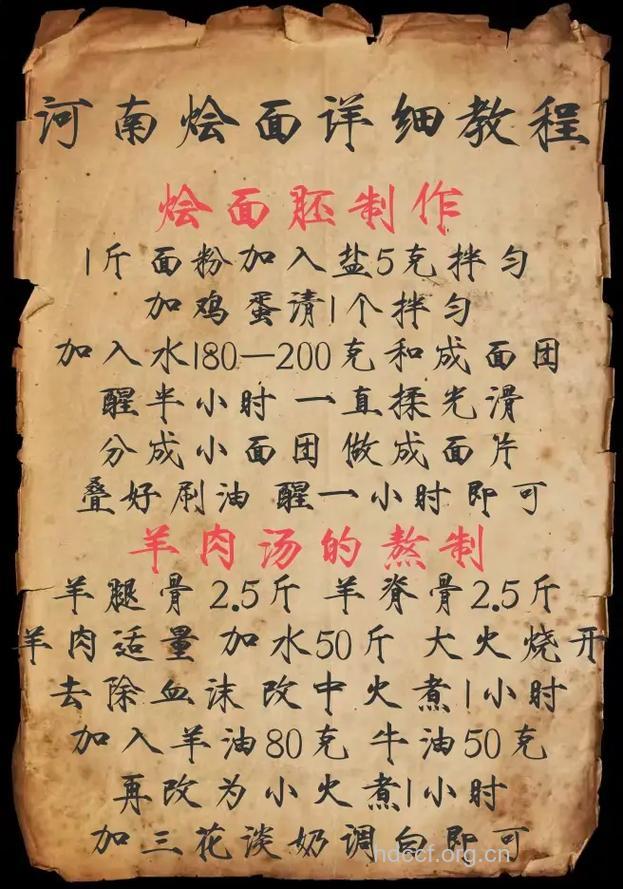 河南烩面详细教程
烩面胚制作
1斤面粉加入盐5克拌匀
加鸡蛋清1个拌匀
加入水180—200克和成面团
醒半小时 一直揉光滑
分成小面团做成面片
叠好刷油 醒一小时即可
羊肉汤的熬制
羊腿骨2.5斤 羊脊骨2.5斤
羊肉适量 加水50斤 大火烧开
去除血沫改中火煮1小时
加入羊油80克 牛油50克
再改为小火煮1小时
加三花淡奶调白即可
hdccf.org.cn